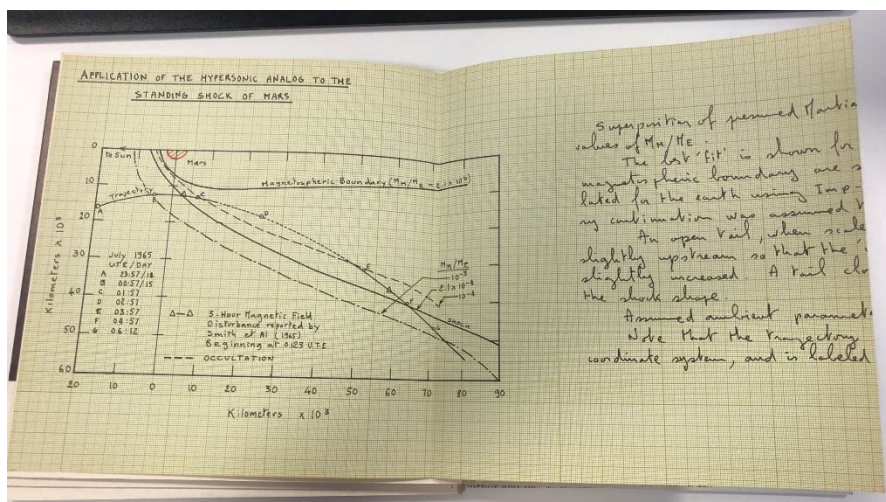 APPLICATION OF THE HYPERSONIC ANALOG TO THE
STANDING SHOCK OF MARS
To Sun
Mars
Magnetospheric Boundary (MM/ME = 2.1 x 10⁴)
Trajectory
A
B
C
D
E
F
G
0
10
20
30
40
50
60
Kilometers x 10³
July 1965
UTE/DAY
A 23:57/14
B 00:57/15
C 01:57
D 02:57
E 03:57
F 04:57
G 06:12
△—△ 5-Hour Magnetic Field
Disturbance reported by
Smith et Al (1965)
Beginning at 0123 U.T.E
--- OCCULTATION
MM/ME
10⁻³
2.1x10⁻⁴
10⁻⁴
SHOCK
20 10 0 10 20 30 40 50 60 70 80 90
Kilometers x 10³
Superposition of presumed Martia
values of MM/ME.
The best 'fit' is shown for
magnetospheric boundary are s
lated for the earth using Imp-
ry continuation was assumed
An open tail, when scale
slightly upstream so that the
slightly increased. A tail clo
the shock shape.
Assumed ambient paramet
Note that the trajectory
coordinate system, and is labeled